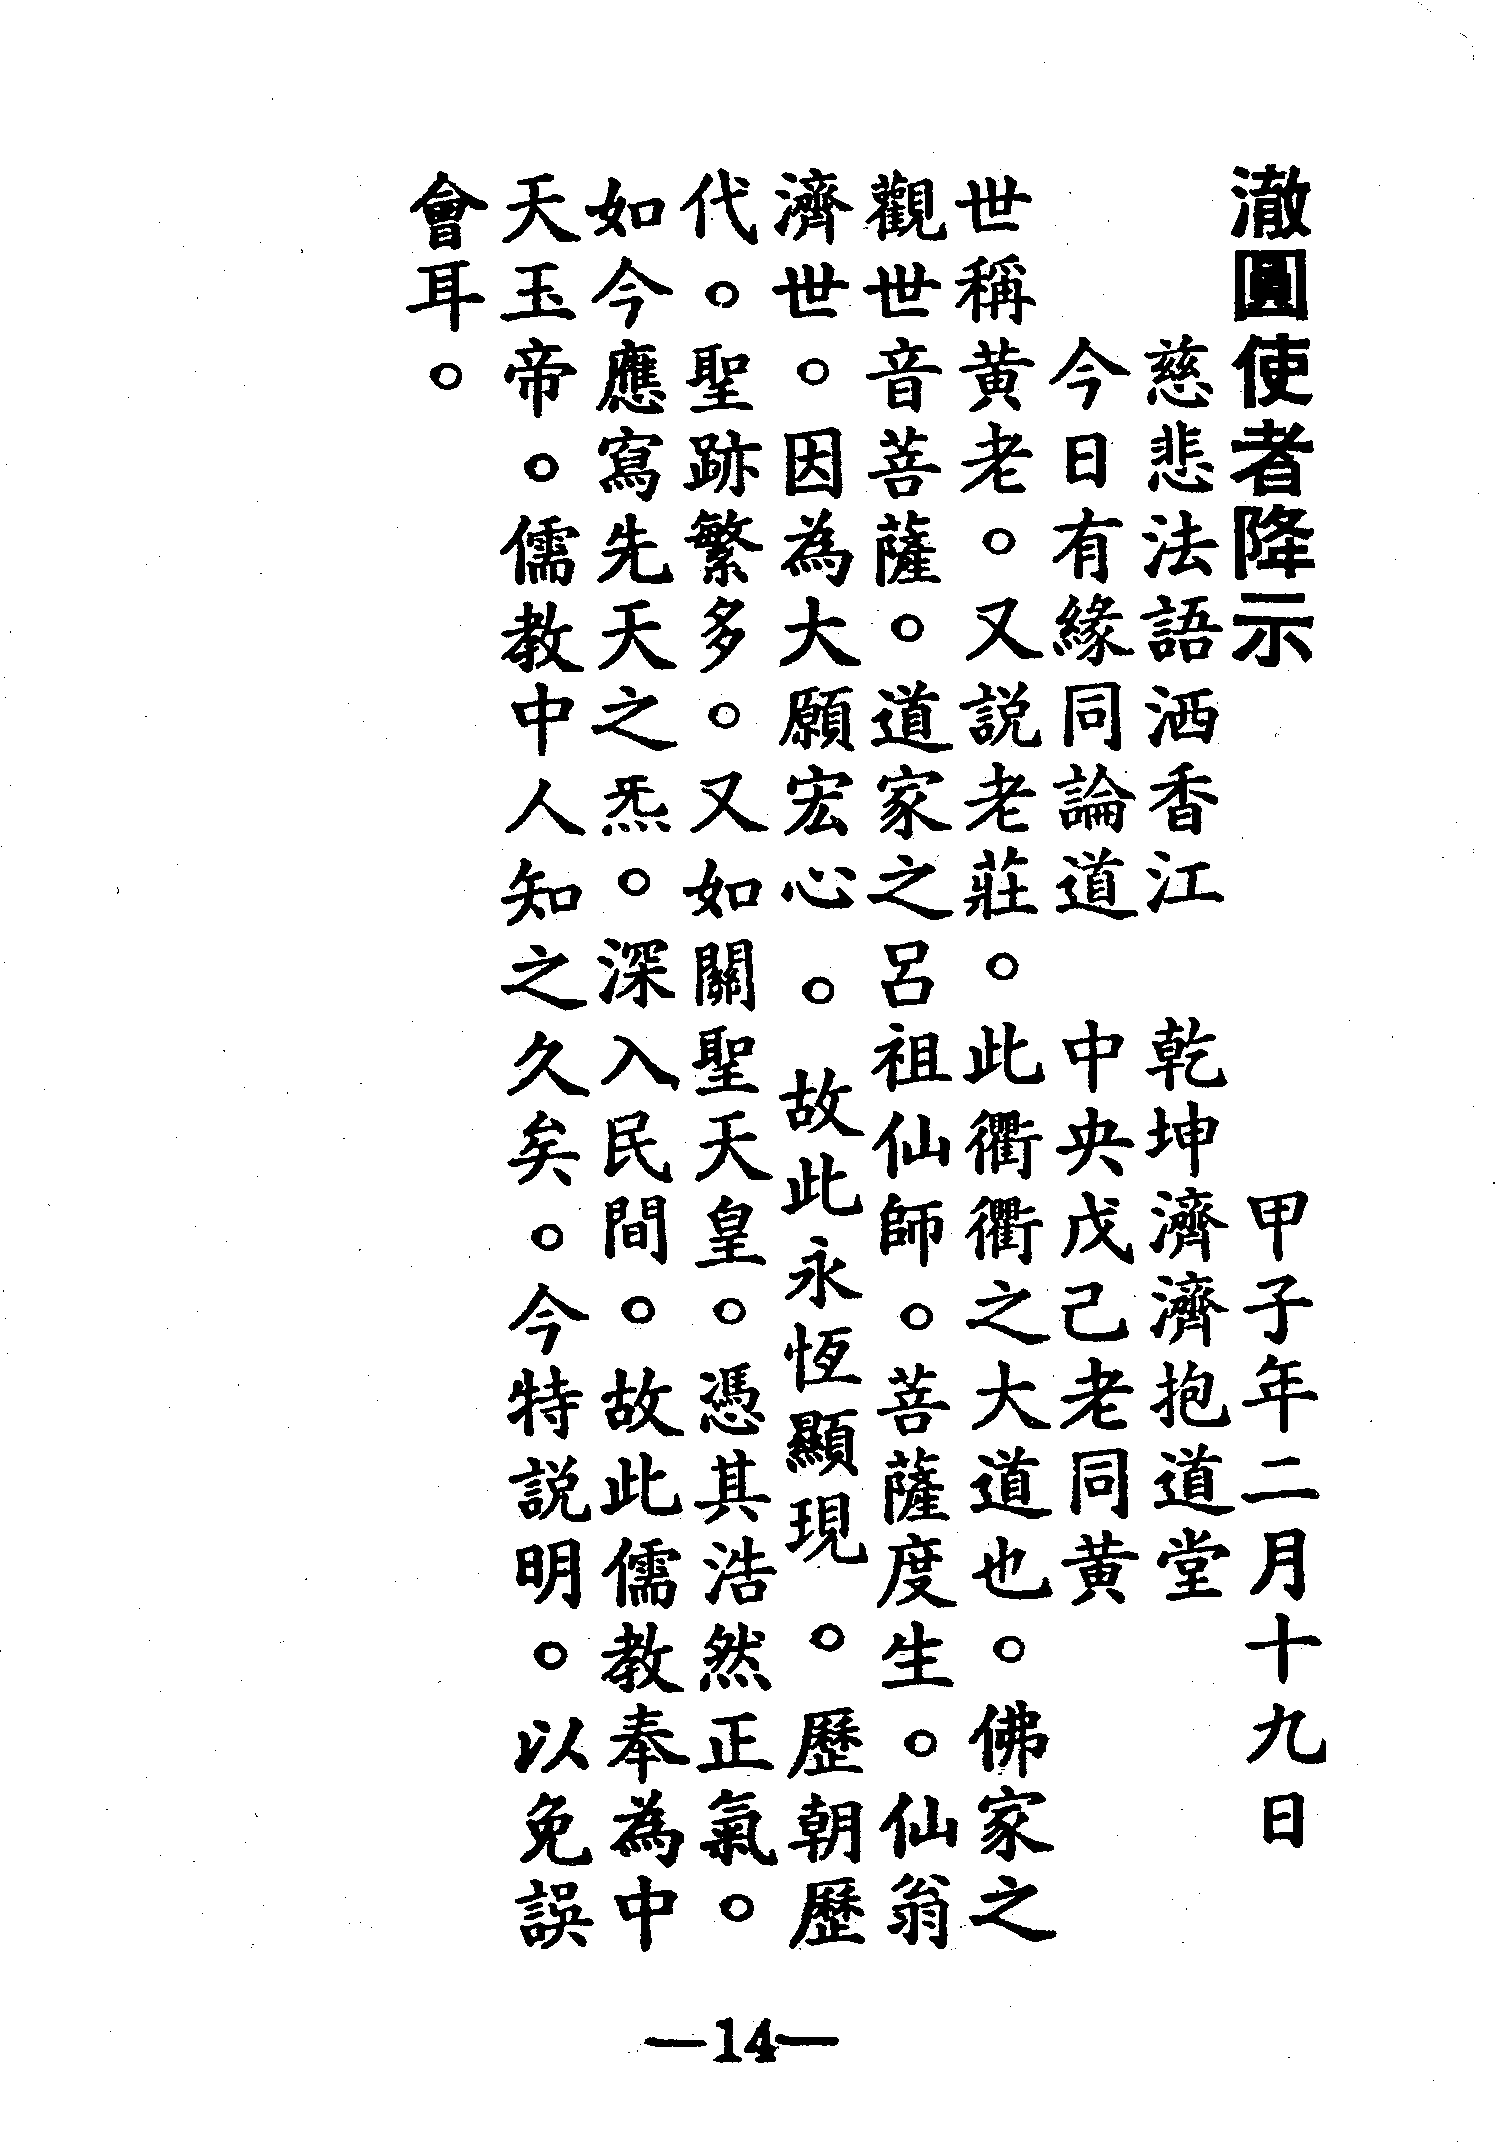 澈圓使者降示　　甲子年二月十九日
慈悲法語洒香江　乾坤濟濟抱道堂
今日有緣同論道　中央戊己老同黃
世稱黃老。又説老莊。此衢衢之大道也。佛家之
觀世音菩薩。道家之呂祖仙師。菩薩度生。仙翁
濟世。因為大願宏心。故此永恆顯現。歷朝歷
代。聖跡繁多。又如關聖天皇。憑其浩然正氣。
如今應寫先天之炁。深入民間。故此儒教奉為中
天玉帝。儒教中人知之久矣。今特説明。以免誤
會耳。
—14—